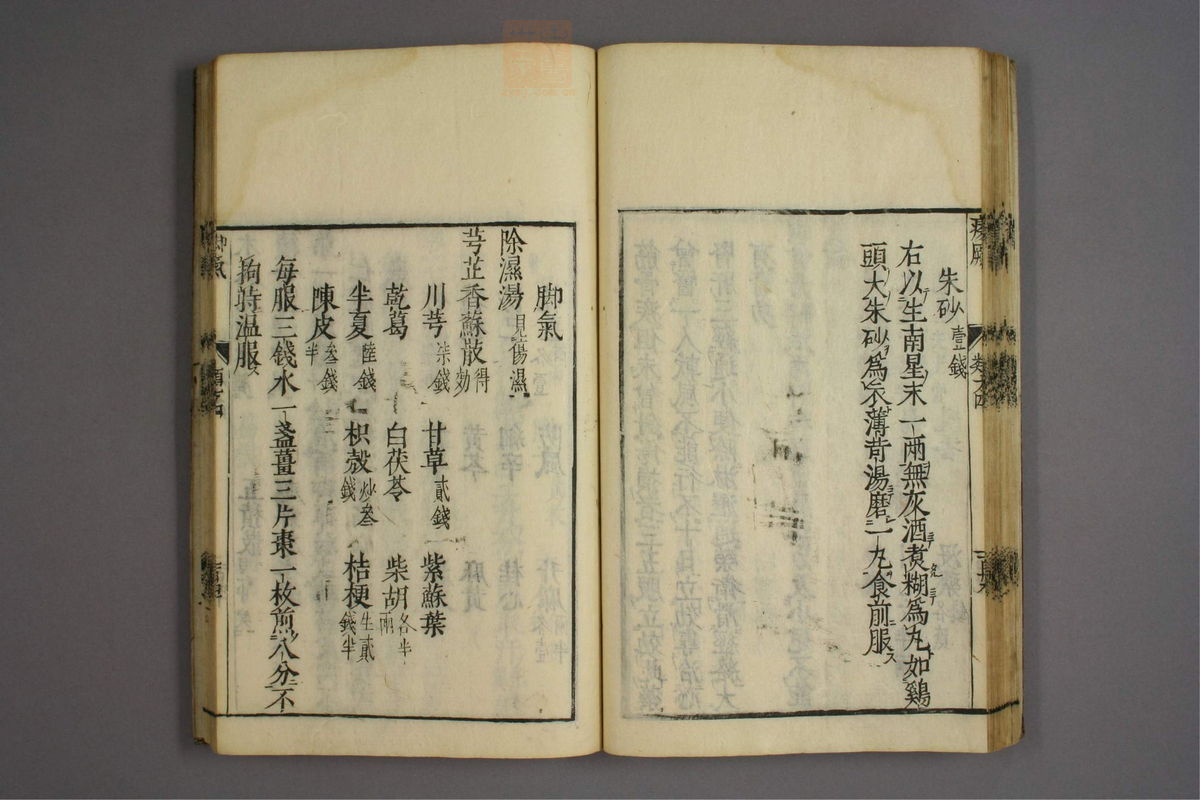 朱砂壹錢
右以生南星末一兩無灰酒煮糊為丸如鷄
頭大朱砂為衣薄荷湯磨一丸食前服
脚氣
除濕湯見傷濕
芎芷香蘇散得効
川芎柒錢 甘草貳錢 紫蘇葉
乾葛 白茯苓 柴胡各半兩
半夏陸錢 枳殼炒叁錢 桔梗生貳錢半
陳皮叁錢半
每服三錢水一盞薑三片棗一枚煎八分不
拘時温服